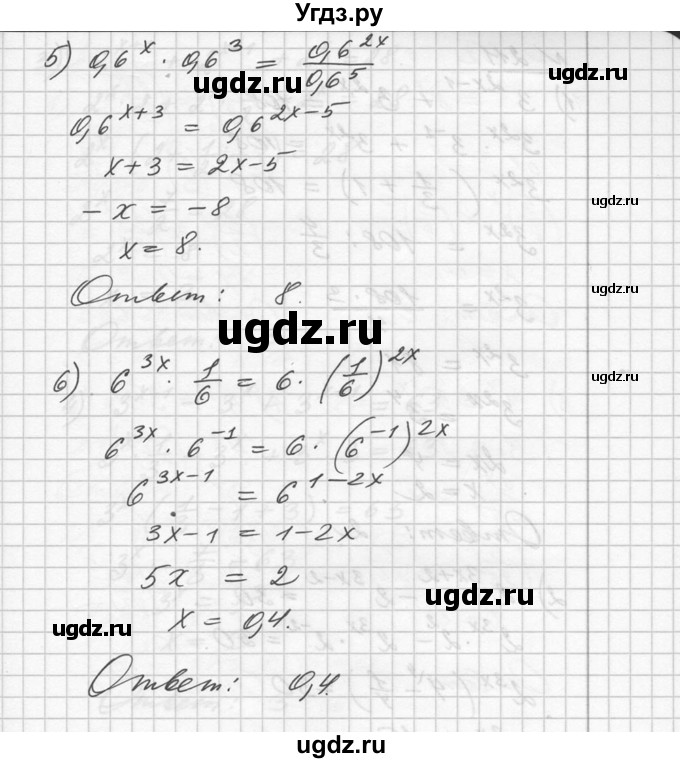 Угдз.ру
5) 0,6^x · 0,6^3 = 0,6^{2x} / 0,6^5
ugdz.ru
ugdz.ru
0,6^{x+3} = 0,6^{2x-5}
x+3 = 2x-5
- x = -8
ugdz.ru
x = 8.
Ответ: 8.
ugdz.ru
ugdz.ru
6) 6^{3x} · 1/6 = 6 · (1/6)^{2x}
ugdz.ru
6^{3x} · 6^{-1} = 6 · (6^{-1})^{2x}
6^{3x-1} = 6^{1-2x}
3x-1 = 1-2x
5x = 2
ugdz.ru
x = 0,4.
ugdz.ru
Ответ: 0,4.
ugdz.ru